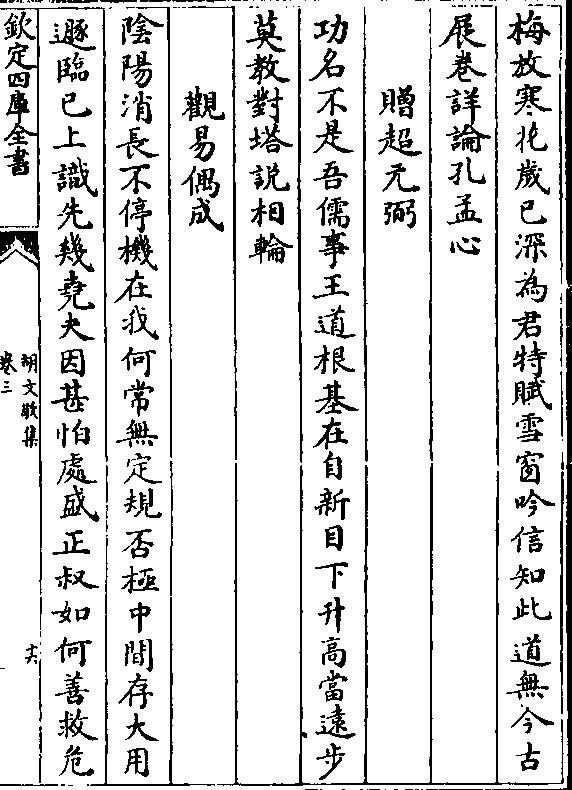 梅放寒花歲已深為君特賦雪窗吟信知此道無今古
展卷詳論孔孟心
贈超元弼
功名不是吾儒事王道根基在自新目下升高當遠步
莫教對塔說相輪
觀易偶成
陰陽消長不停機在我何常無定規否極中間存大用
遯臨已上識先幾堯夫因甚怕處盛正叔如何善救危
欽定四庫全書
胡文敬集
卷三
十六